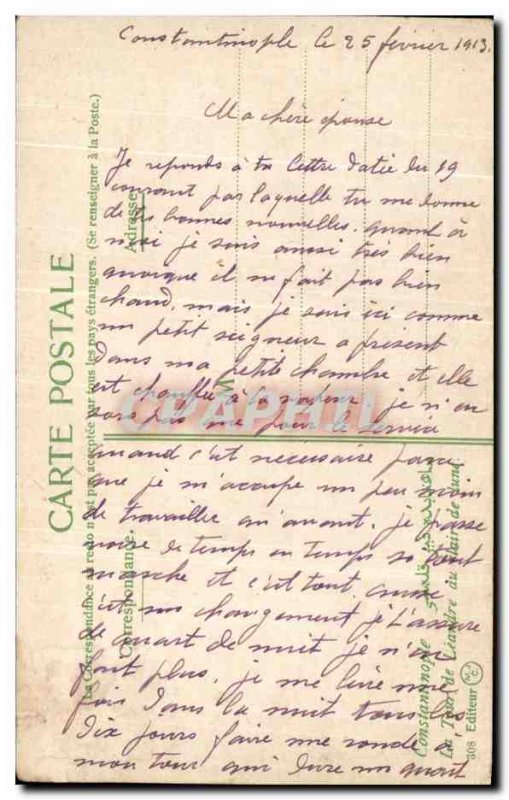 Constantinople le 25 février 1913.
Ma chère épouse
Je reponds à ta lettre datée du 19
courant par laquelle tu me donne
de tes bonnes nouvelles. quant à
moi je suis aussi très bien
quoique il ne fait pas bien
chaud, mais je suis ici comme
un petit seigneur a présent
Dans ma petite chambre et elle
est chauffée à la vapeur je n'en
sors pas que pour le service
quand c'est necessaire parce
que je m'occupe un peu moin
de travailler qu'avant. je passe
voire de temps en temps si tout
marche et c'est tout
c'est un changement je t'assure
de quart de nuit je n'en
fait plus, je me lève une
fois Dans la nuit tous les
Dix jours faire une ronde à
mon tour qui dure un quart
CARTE POSTALE
La Correspondance au recto n'est pas acceptée par tous les pays étrangers. (Se renseigner à la Poste.)
Correspondance
Adresse
M
Constantinople
La Tour de Léandre au clair de lune
308 Editeur
CPAPHIL